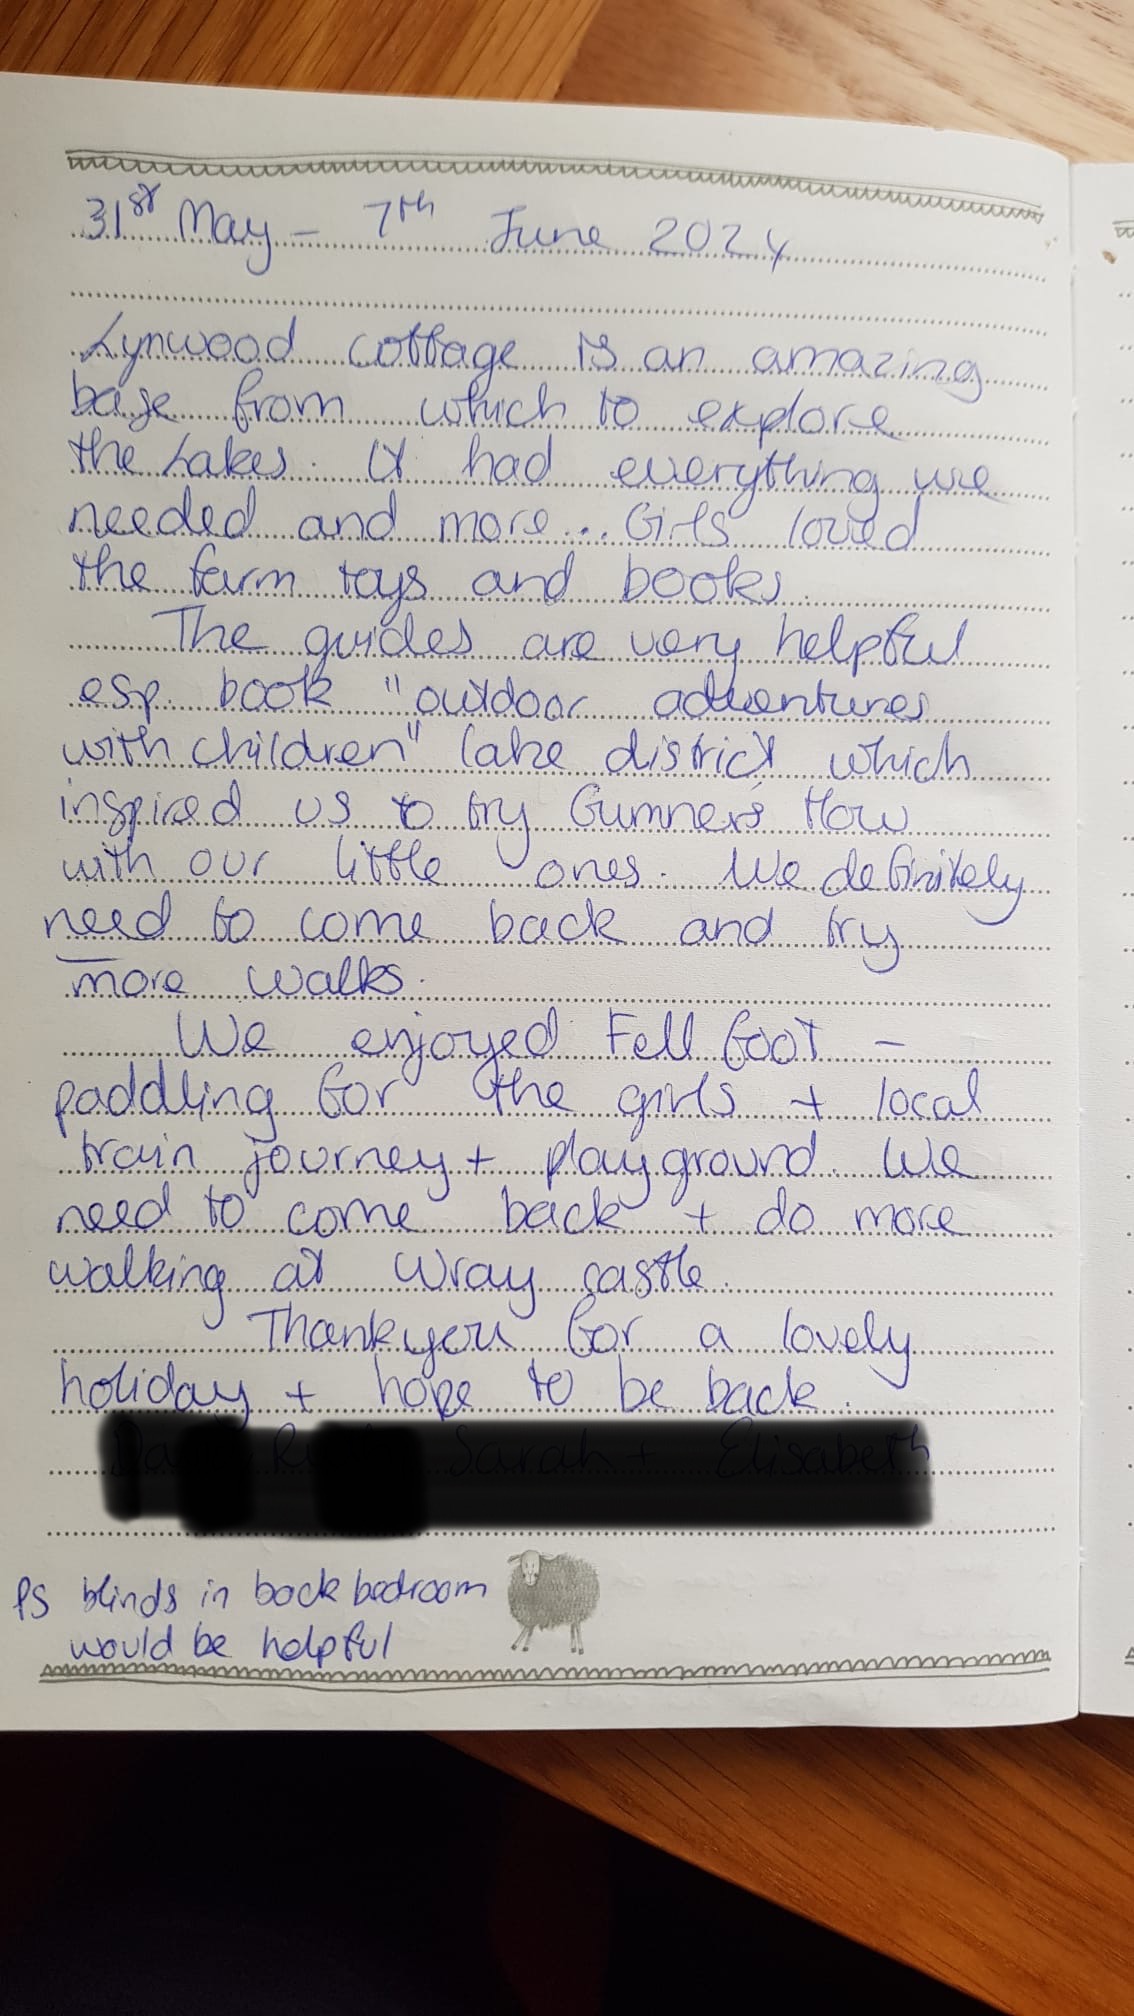 31st May - 7th June 2024
Lynwood cottage is an amazing
base from which to explore
the Lakes. It had everything we
needed and more... Girls loved
the farm toys and books.
The guides are very helpful
esp. book "outdoor adventures
with children" lake district which
inspired us to try Gummer's How
with our little ones. We definitely
need to come back and try
more walks.
We enjoyed Fell foot -
paddling for the girls + local
train journey + playground. We
need to come back + do more
walking at Wray castle.
Thankyou for a lovely
holiday + hope to be back.
PS blinds in back bedroom
would be helpful